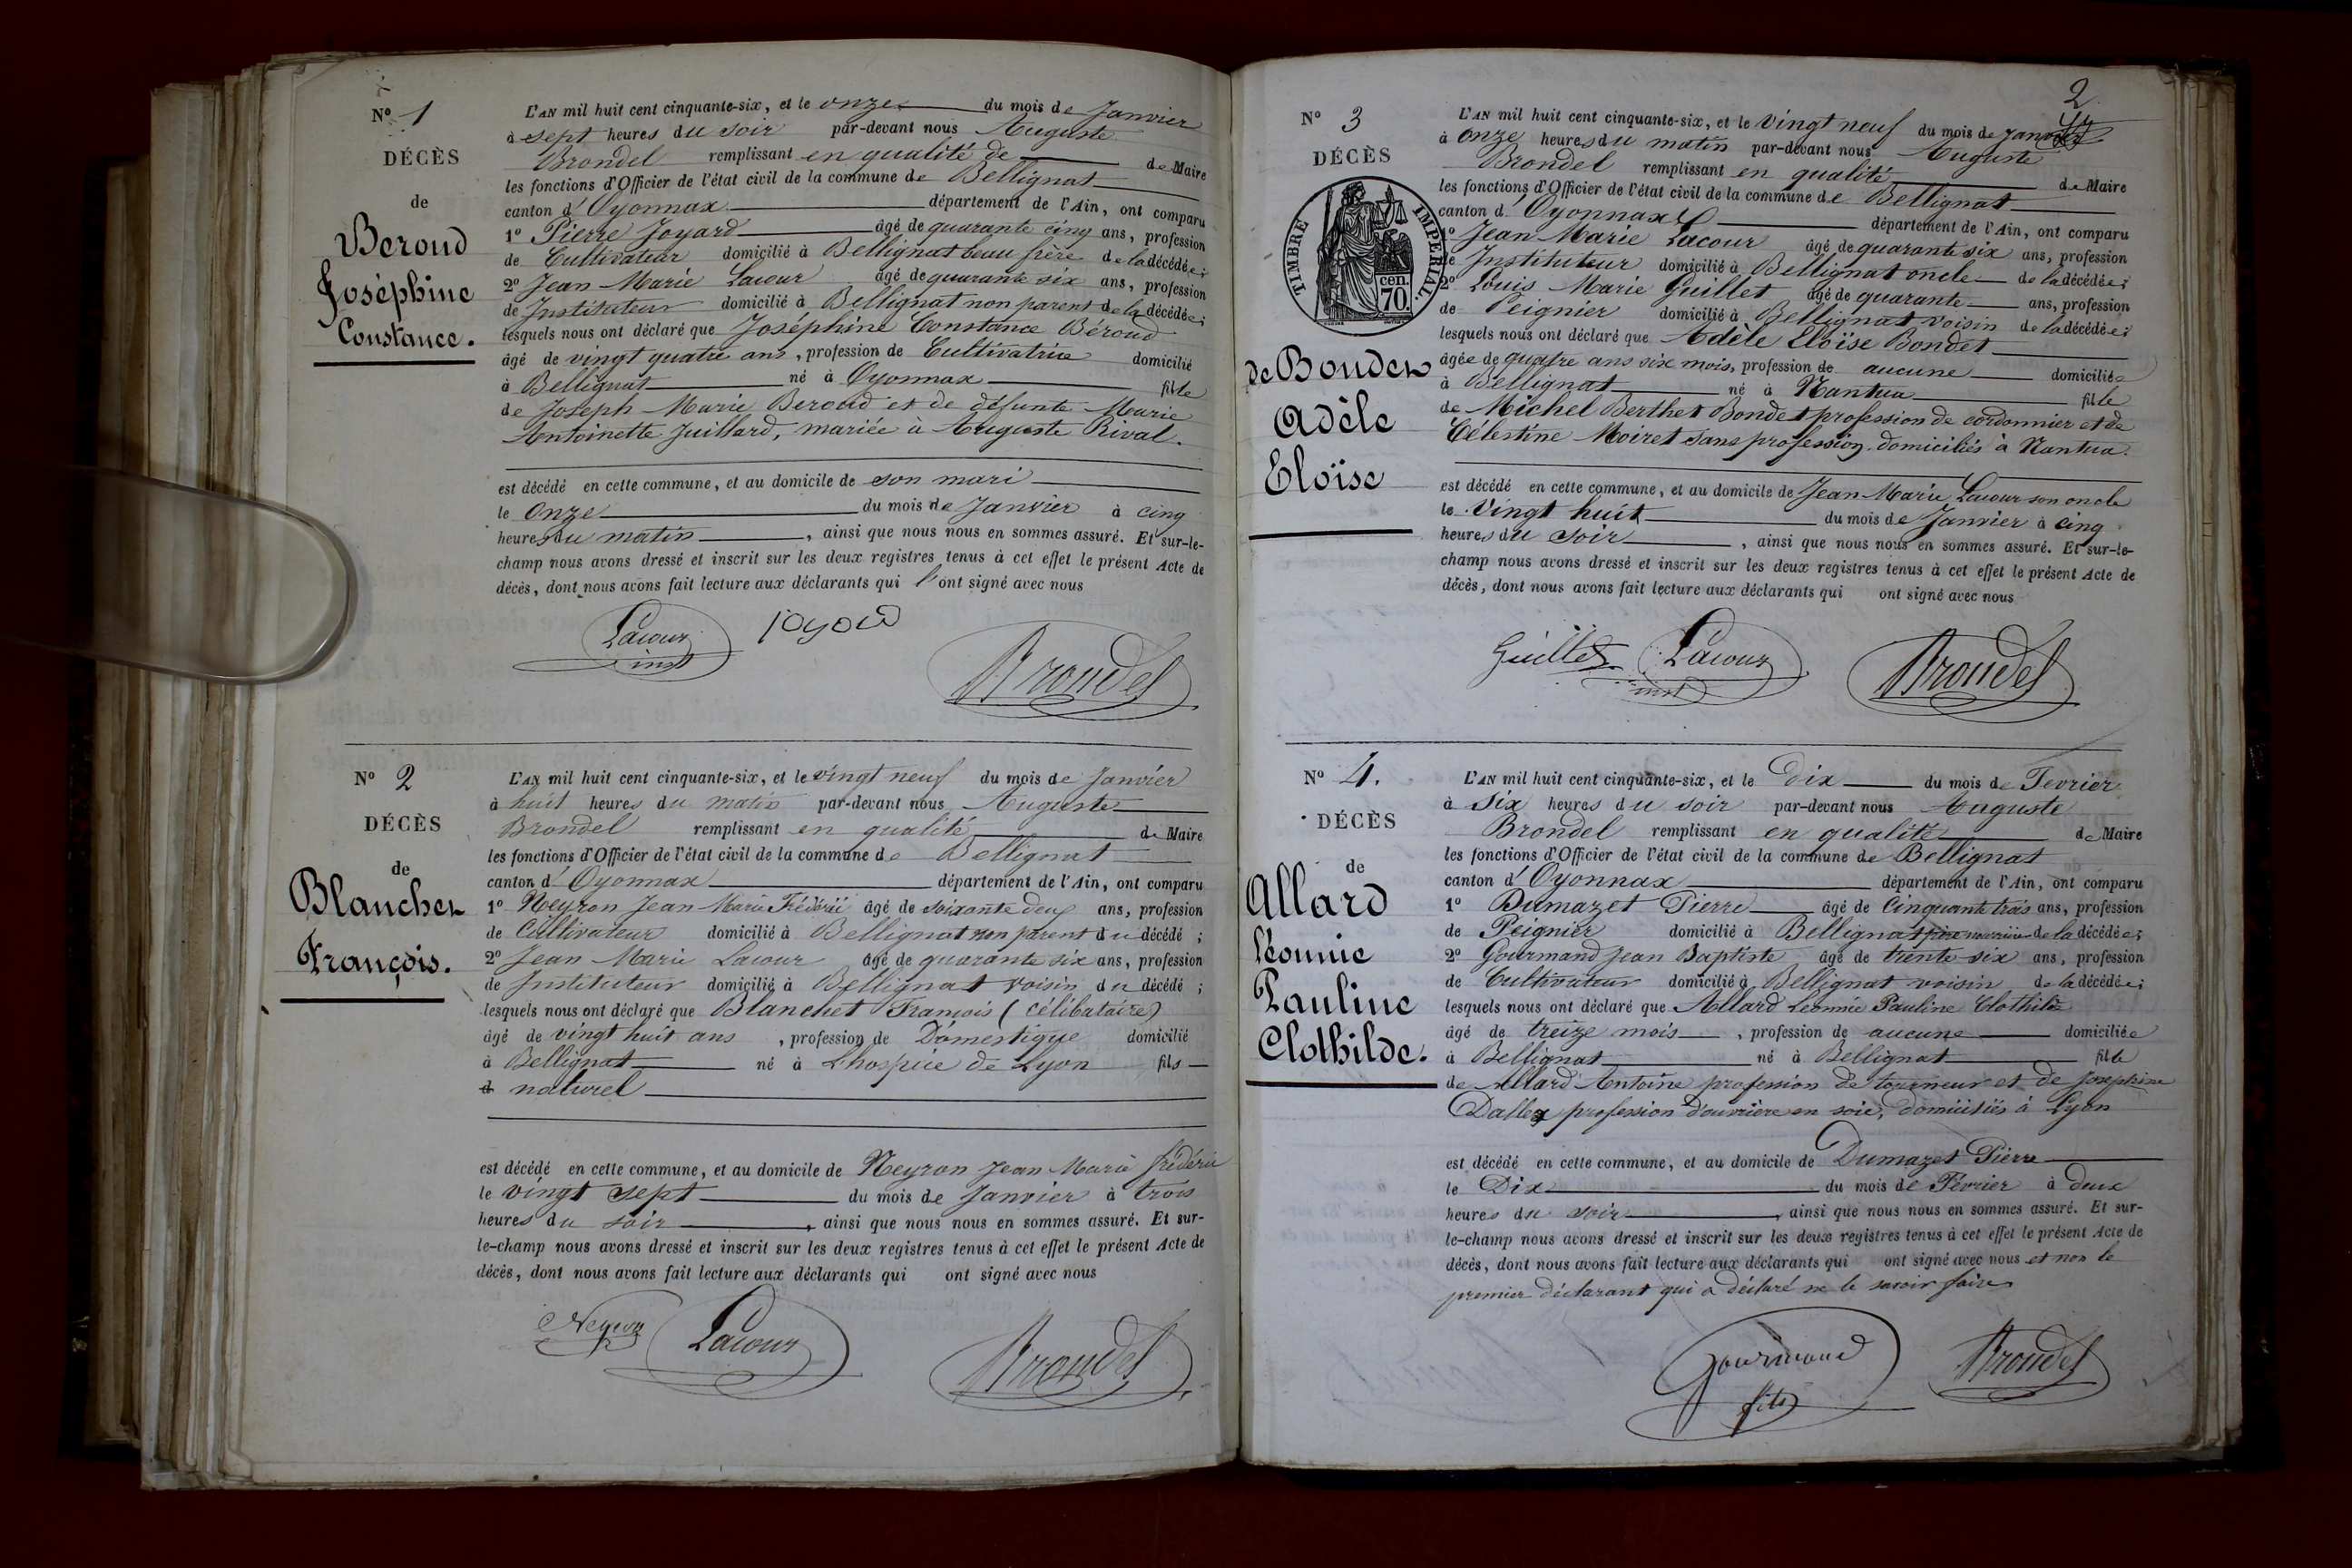 N° 1
DÉCÈS
de
Beroud
Joséphine
Constance.
L'AN mil huit cent cinquante-six, et le onze du mois de Janvier
à sept heures du soir par-devant nous Auguste
Brondel remplissant en qualité de de Maire
les fonctions d'Officier de l'état civil de la commune de Bellignat
canton d'Oyonnax département de l'Ain, ont comparu
1° Pierre Joyard âgé de quarante cinq ans, profession
de Cultivateur domicilié à Bellignat beau frère de la décédée;
2° Jean Marie Lacour âgé de quarante six ans, profession
de Instituteur domicilié à Bellignat non parent de la décédée;
lesquels nous ont déclaré que Joséphine Constance Béroud
âgé de vingt quatre ans, profession de Cultivatrice domicilié
à Bellignat né à Oyonnax fille
de Joseph Marie Beroud et de défunte Marie
Antoinette Juillard, mariée à Auguste Rival.
est décédé en cette commune, et au domicile de son mari
le Onze du mois de Janvier à cinq
heures du matin, ainsi que nous nous en sommes assuré. Et sur-le-
champ nous avons dressé et inscrit sur les deux registres tenus à cet effet le présent Acte de
décès, dont nous avons fait lecture aux déclarants qui l'ont signé avec nous
Lacour joyard
inst
Brondel
N° 2
DÉCÈS
de
Blanchet
François.
L'AN mil huit cent cinquante-six, et le vingt neuf du mois de Janvier
à huit heures du matin par-devant nous Auguste
Brondel remplissant en qualité de Maire
les fonctions d'Officier de l'état civil de la commune de Bellignat
canton d'Oyonnax département de l'Ain, ont comparu
1° Neyron Jean Marie Frédéric âgé de soixante deux ans, profession
de Cultivateur domicilié à Bellignat non parent du décédé;
2° Jean Marie Lacour âgé de quarante six ans, profession
de Instituteur domicilié à Bellignat voisin du décédé;
lesquels nous ont déclaré que Blanchet François (célibataire)
âgé de vingt huit ans, profession de Domestique domicilié
à Bellignat né à Lhospice de Lyon fils
d naturel
est décédé en cette commune, et au domicile de Neyron Jean Marie frédéric
le vingt sept du mois de Janvier à trois
heures du soir, ainsi que nous nous en sommes assuré. Et sur-
le-champ nous avons dressé et inscrit sur les deux registres tenus à cet effet le présent Acte de
décès, dont nous avons fait lecture aux déclarants qui ont signé avec nous
Neyron Lacour Brondel
2
N° 3
DÉCÈS
TIMBRE IMPERIAL.
70 cen.
de Bondet
Adèle
Eloïse
L'AN mil huit cent cinquante-six, et le vingt neuf du mois de janvier
à onze heures du matin par-devant nous Auguste
Brondel remplissant en qualité de Maire
les fonctions d'Officier de l'état civil de la commune de Bellignat
canton d'Oyonnax département de l'Ain, ont comparu
1° Jean Marie Lacour âgé de quarante six ans, profession
de Instituteur domicilié à Bellignat oncle de la décédée;
2° Louis Marie Guillet âgé de quarante ans, profession
de Peignier domicilié à Bellignat voisin de la décédée;
lesquels nous ont déclaré que Adèle Eloïse Bondet
âgée de quatre ans six mois, profession de aucune domiciliée
à Bellignat né à Nantua fille
de Michel Berthet Bondet profession de cordonnier et de
Célestine Moiret sans profession domiciliés à Nantua.
est décédé en cette commune, et au domicile de Jean Marie Lacour son oncle
le Vingt huit du mois de Janvier à cinq
heures du soir, ainsi que nous nous en sommes assuré. Et sur-le-
champ nous avons dressé et inscrit sur les deux registres tenus à cet effet le présent Acte de
décès, dont nous avons fait lecture aux déclarants qui ont signé avec nous
Guillet Lacour Brondel
inst
N° 4.
DÉCÈS
de
Allard
Léonnie
Pauline
Clothilde.
L'AN mil huit cent cinquante-six, et le Dix du mois de Fevrier
à six heures du soir par-devant nous Auguste
Brondel remplissant en qualité de Maire
les fonctions d'Officier de l'état civil de la commune de Bellignat
canton d'Oyonnax département de l'Ain, ont comparu
1° Dumazet Pierre âgé de Cinquante trois ans, profession
de Peignier domicilié à Bellignat père nourricier de la décédée;
2° Gourmand Jean Baptiste âgé de trente six ans, profession
de Cultivateur domicilié à Bellignat voisin de la décédée;
lesquels nous ont déclaré que Allard Leonnie Pauline Clothilde
âgé de treize mois, profession de aucune domiciliée
à Bellignat né à Bellignat fille
de Allard Antoine profession de tourneur et de Josephine
Dallex profession d'ouvrière en soie, domiciliés à Lyon
est décédé en cette commune, et au domicile de Dumazet Pierre
le Dix du mois de Février à deux
heures du soir, ainsi que nous nous en sommes assuré. Et sur-
le-champ nous avons dressé et inscrit sur les deux registres tenus à cet effet le présent Acte de
décès, dont nous avons fait lecture aux déclarants qui ont signé avec nous et non le
premier déclarant qui a déclaré ne le savoir faire
Gourmand Brondel
fils